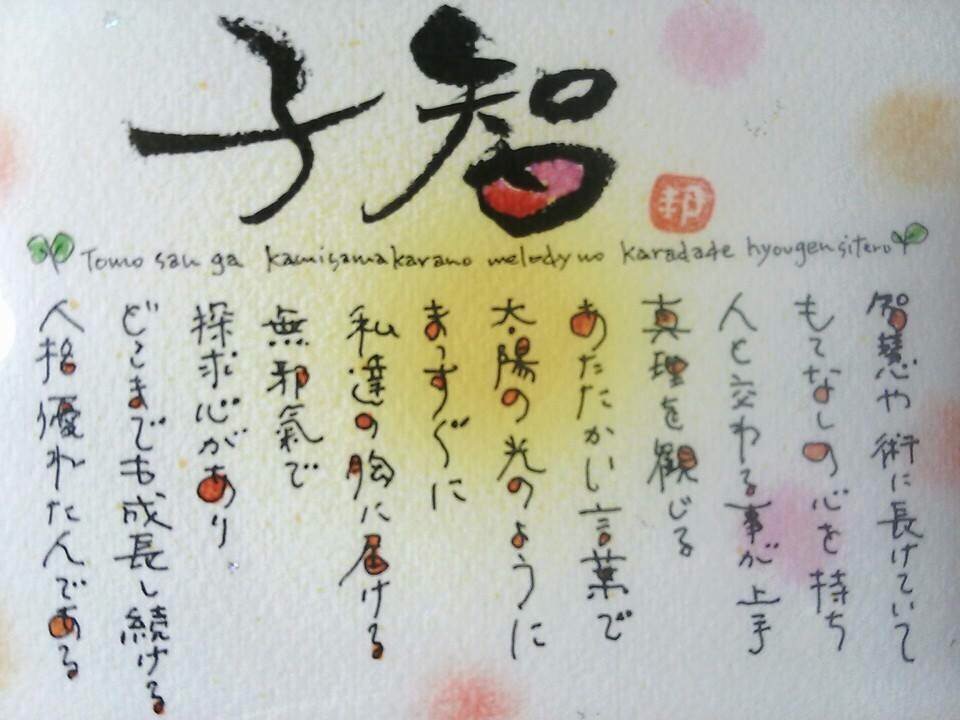 智子
邦
Tomo san ga kamisamakarano melody wo karadade hyougen siteru
智慧や術に長けていて
もてなしの心を持ち
人と交わる事が上手
真理を観じる
あたたかい言葉で
太陽の光のように
まっすぐに
私達の胸に届ける
無邪氣で
探求心があり
どこまでも成長し続ける
人格優れた人である